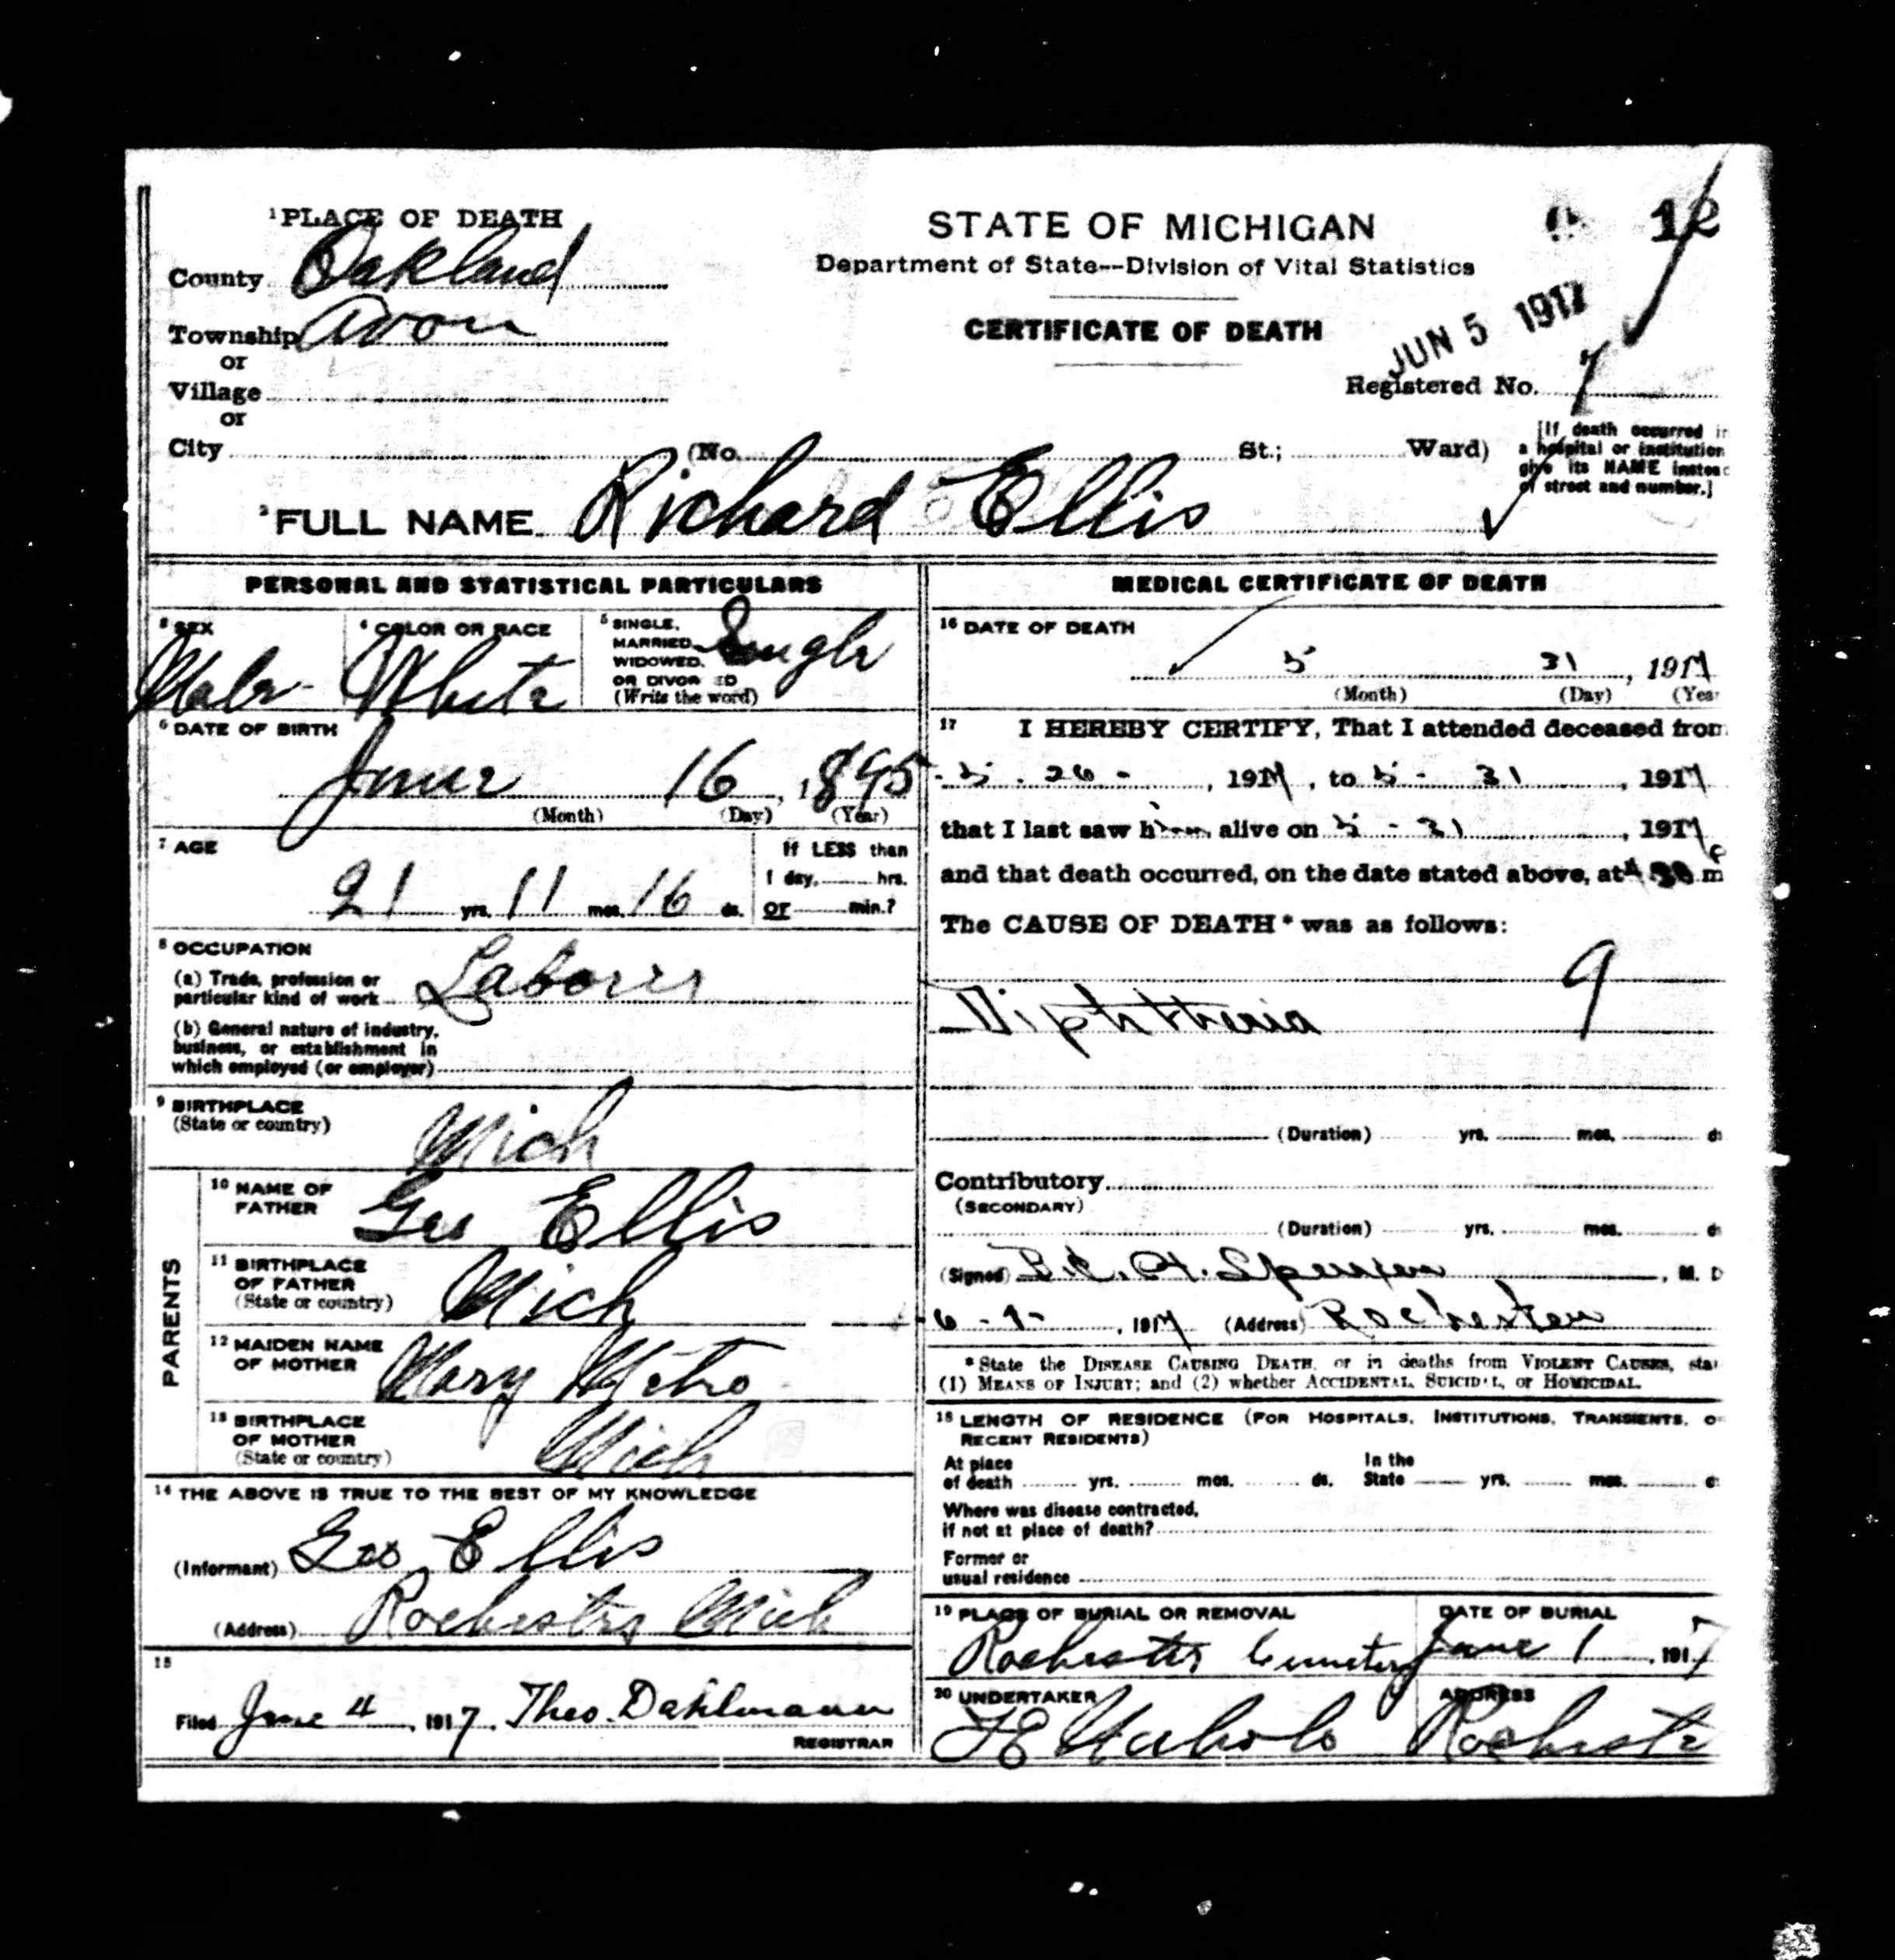 1 PLACE OF DEATH
County Oakland
Township Avon
or
Village
or
City (No. St.; Ward)
STATE OF MICHIGAN
Department of State--Division of Vital Statistics
CERTIFICATE OF DEATH
12
JUN 5 1917
Registered No. 7
[If death occurred in
a hospital or institution
give its NAME instead
of street and number.]
2 FULL NAME Richard Ellis
PERSONAL AND STATISTICAL PARTICULARS
3 SEX
Male
4 COLOR OR RACE
White
5 SINGLE,
MARRIED,
WIDOWED,
OR DIVORCED
(Write the word)
Single
6 DATE OF BIRTH
June 16, 1895
(Month) (Day) (Year)
7 AGE
21 yrs. 11 mos. 16 ds.
If LESS than
1 day, hrs.
or min.?
8 OCCUPATION
(a) Trade, profession or
particular kind of work Laborer
(b) General nature of industry,
business, or establishment in
which employed (or employer)
9 BIRTHPLACE
(State or country)
Mich
PARENTS
10 NAME OF
FATHER
Geo Ellis
11 BIRTHPLACE
OF FATHER
(State or country)
Mich
12 MAIDEN NAME
OF MOTHER
Mary
13 BIRTHPLACE
OF MOTHER
(State or country)
Mich
14 THE ABOVE IS TRUE TO THE BEST OF MY KNOWLEDGE
(Informant) Geo Ellis
(Address) Rochester Mich
15
Filed June 4, 1917, Theo. Dahlmann
REGISTRAR
MEDICAL CERTIFICATE OF DEATH
16 DATE OF DEATH
5 31, 1917
(Month) (Day) (Yea
17 I HEREBY CERTIFY, That I attended deceased from
5 - 26 - , 1917, to 5 - 31 , 1917
that I last saw him alive on 5 - 31 , 1917
and that death occurred, on the date stated above, at m
The CAUSE OF DEATH* was as follows:
9
Diphtheria
(Duration) yrs. mos. d
Contributory
(SECONDARY)
(Duration) yrs. mos. d
(Signed) , M. D
1917 (Address) Rochester
*State the DISEASE CAUSING DEATH, or in deaths from VIOLENT CAUSES, sta
(1) MEANS OF INJURY; and (2) whether ACCIDENTAL, SUICIDAL, or HOMICIDAL.
18 LENGTH OF RESIDENCE (FOR HOSPITALS, INSTITUTIONS, TRANSIENTS, O
RECENT RESIDENTS)
At place
of death yrs. mos. ds.
In the
State yrs. mos. d
Where was disease contracted,
if not at place of death?
Former or
usual residence
19 PLACE OF BURIAL OR REMOVAL
Rochester Cemetery
DATE OF BURIAL
June 1, 1917
20 UNDERTAKER
ADDRESS
Rochester